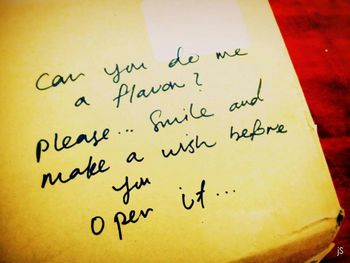 Can you do me
a flavor?
please... Smile and
make a wish before
you
open it...
jS